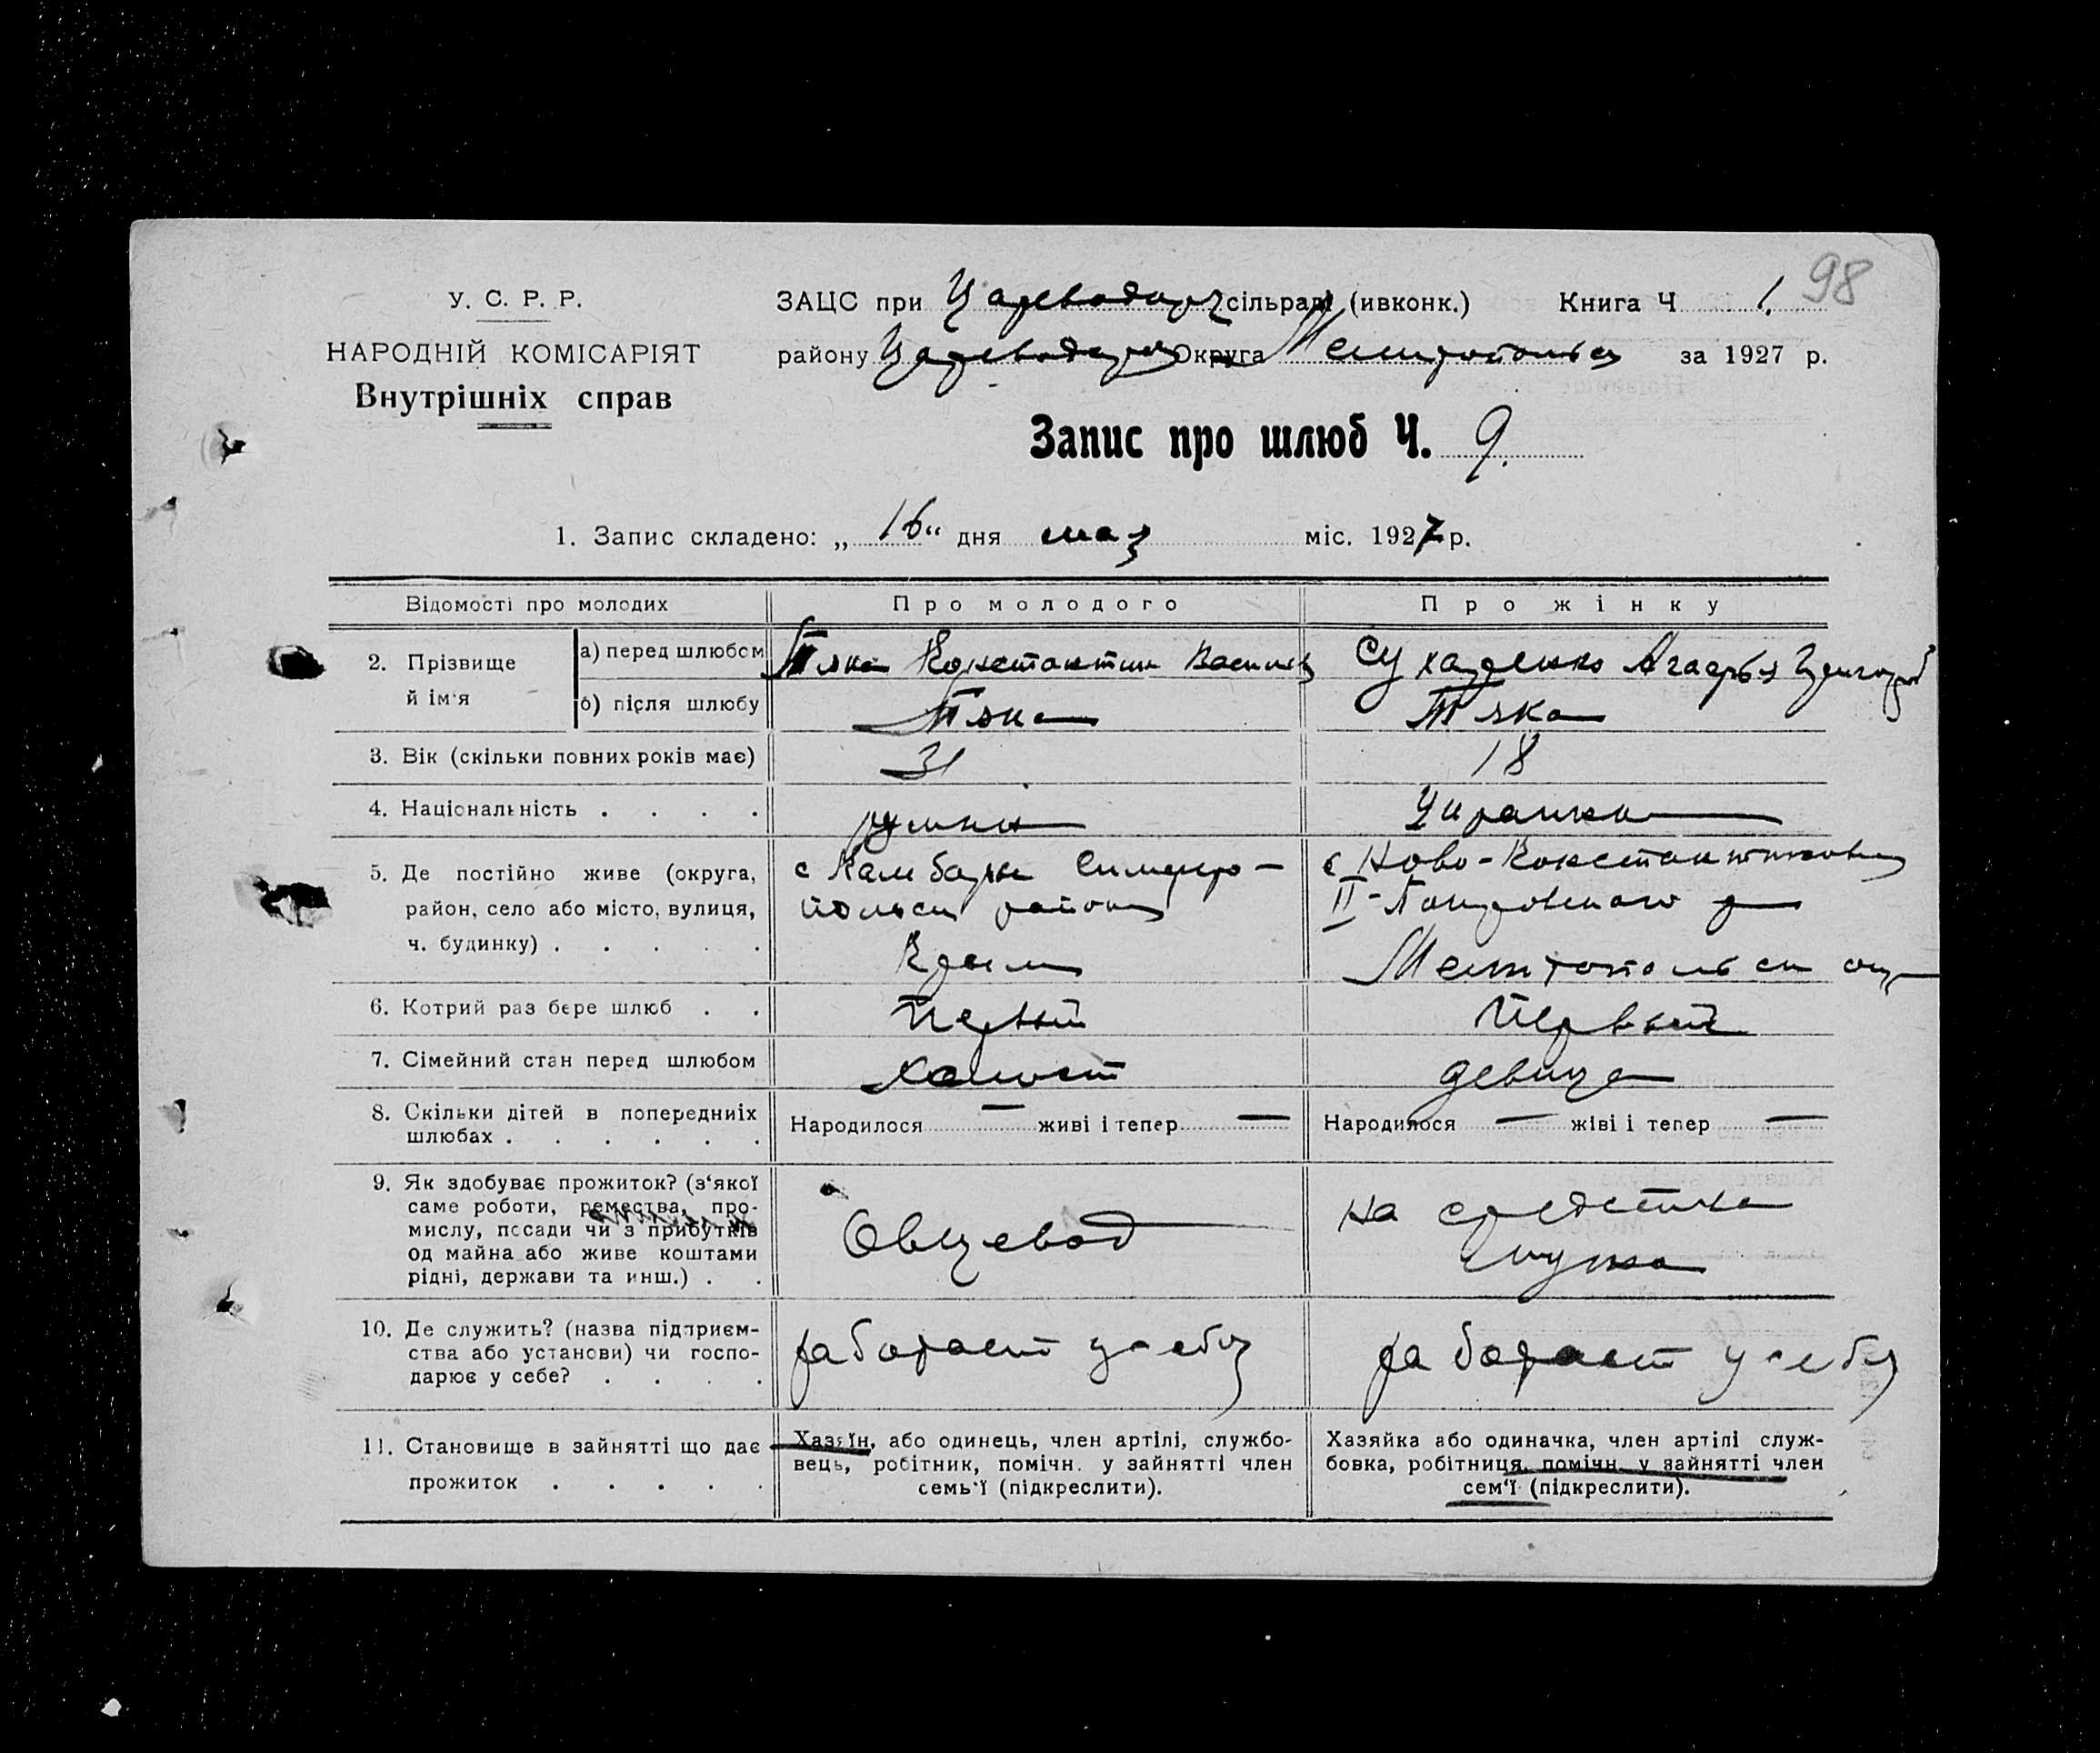 98
У. С. Р. Р.
НАРОДНІЙ КОМІСАРІЯТ
Внутрішніх справ
ЗАЦС при Цареводар сільраді (ивконк.) Книга Ч 1.
району Округа за 1927 р.
Запис про шлюб Ч. 9.
1. Запис складено: „ 16 “ дня мая міс. 1927 р.
Відомості про молодих
Про молодого
Про жінку
2. Прізвище й ім'я
а) перед шлюбом
Тяка Константин Васильев
Сухаренко Агафья
б) після шлюбу
Тяка
Тяка
3. Вік (скільки повних років має)
31
18
4. Національність . . . .
Украинка
5. Де постійно живе (округа,
район, село або місто, вулиця,
ч. будинку) . . . . .
с Камбары Симферо-
польск района
Крым
с Ново-Константиновка
II-Покровского
Мелитопольск окр
6. Котрий раз бере шлюб . .
Первый
Первый
7. Сімейний стан перед шлюбом
холост
девица
8. Скільки дітей в попередниіх
шлюбах . . . . . .
Народилося — живі і тепер —
Народилося — жіві і тепер —
9. Як здобуває прожиток? (з‘якої
саме роботи, ремества, про-
мислу, посади чи з прибутків
од майна або живе коштами
рідні, держави та инш.) . .
Овцевод
на средства
мужа
10. Де служить? (назва підприєм-
ства або установи) чи госпо-
дарює у себе? . . . .
работает у себя
работает у себя
11. Становище в зайнятті що дає
прожиток . . . . .
Хазяїн, або одинець, член артілі, службо-
вець, робітник, помічн. у зайнятті член
семь‘ї (підкреслити).
Хазяйка або одиначка, член артілі служ-
бовка, робітниця, помічн. у зайнятті член
сем‘ї (підкреслити).